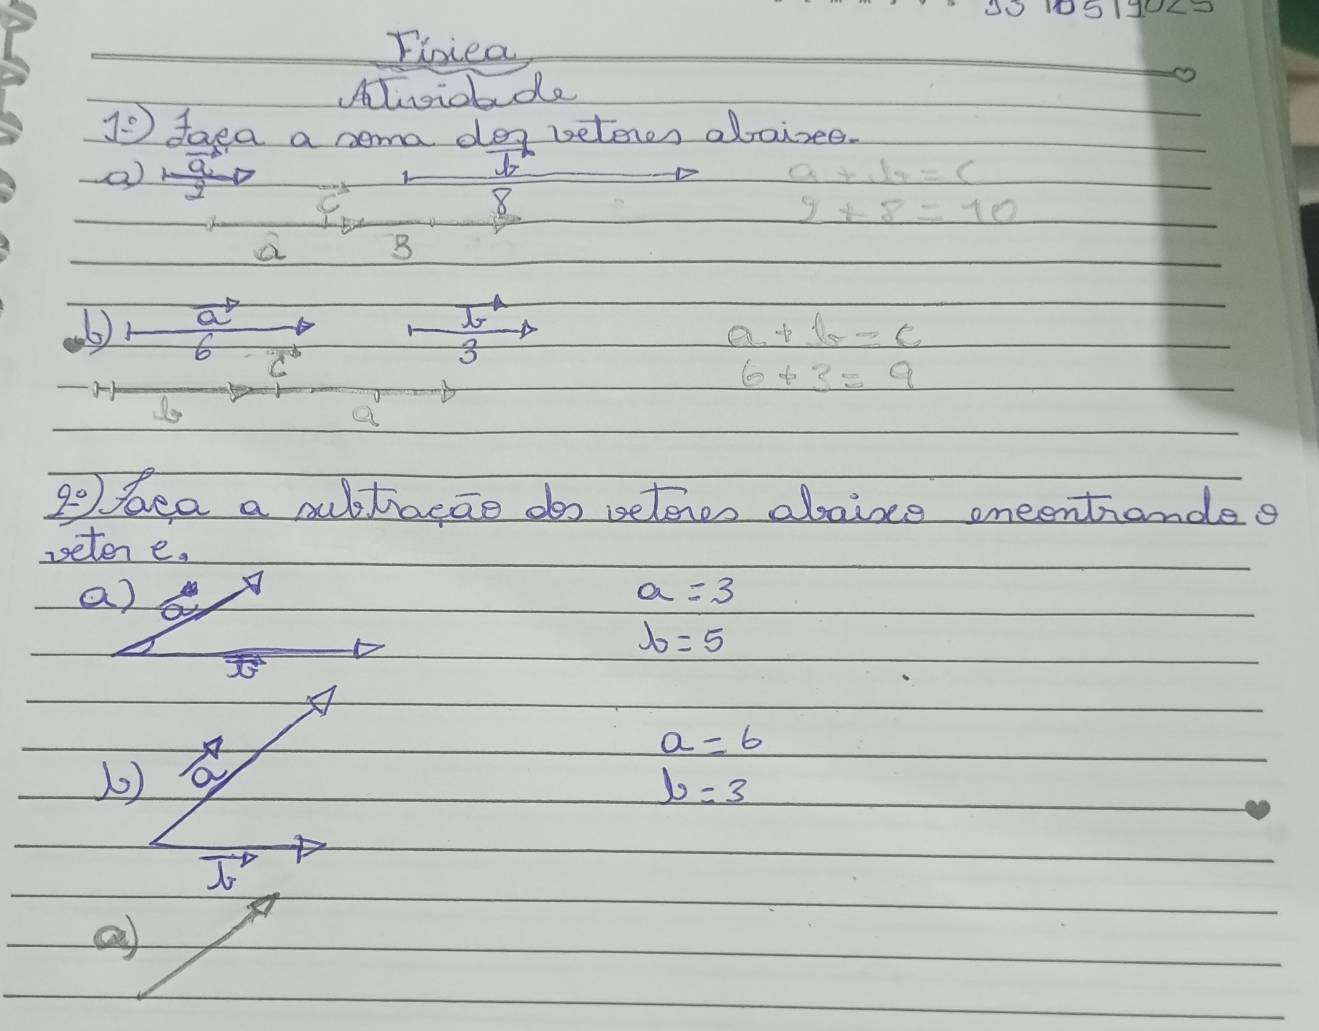 Física
Atividade
1º) Faça a soma dos vetores abaixo.
a) a 2 b 8 a + b = c
c 2 + 8 = 10
a B
b) a 6 b 3 a + b = c
c 6 + 3 = 9
b a
2º) Faça a subtração dos vetores abaixo encontrando o
vetor c.
a) a a = 3
b b = 5
b) a a = 6
b = 3
b
a)